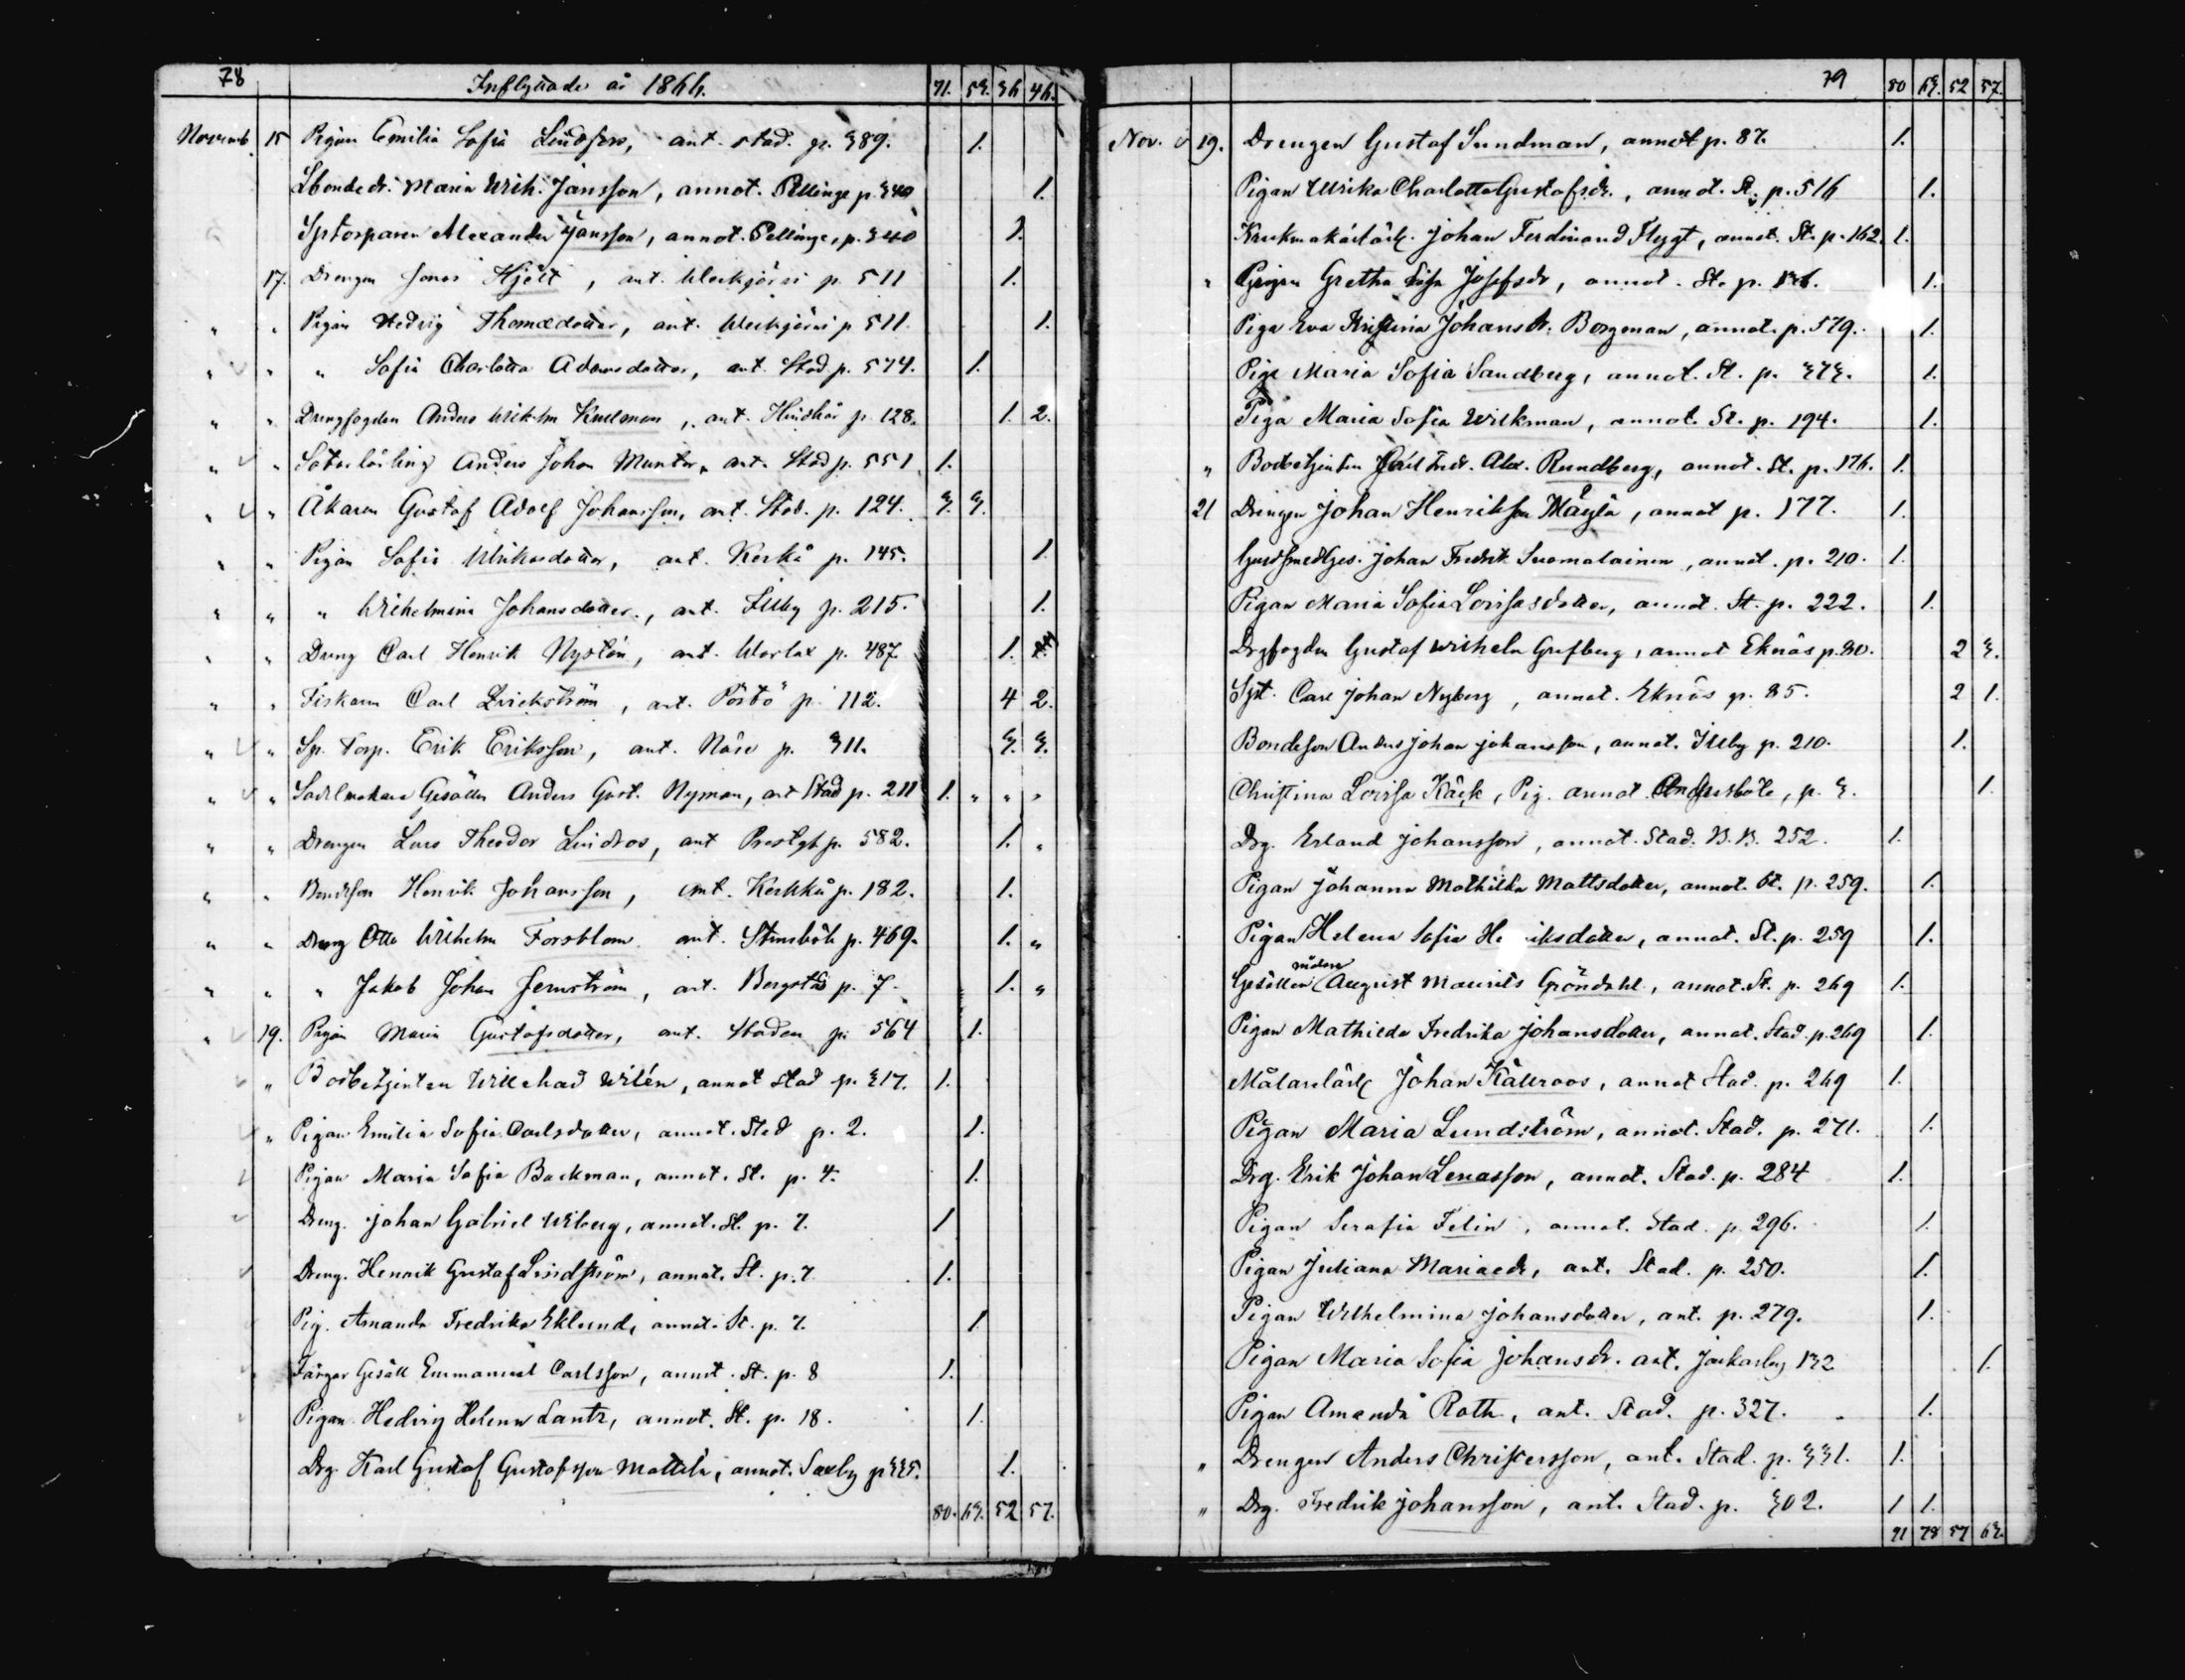 78 Inflyttade år 1866. 71. 53. 36 46.
Novemb. 15 Pigan Emilia Sofia Lindfors, ant. stad. p. 389. 1.
Lbonde dr. Maria Wilh. Jansson, annot. Pellinge p. 340 1.
Sptorparen Alexander Jansson, annot. Pellinge, p. 340 1.
17. Drengen Jonas Hjelt, ant. Weckjärvi p. 511 1.
" " Pigan Hedvig Thomædotter, ant. Weckjärvi p. 511. 1.
" " " Sofia Charlotta Adamsdotter, ant. Stad. p. 574. 1.
" " Drengfogden Anders Wilhelm Kullman, ant. Hindhår p. 128. 1. 2.
" " Anders Johan Munter, ant. Stad p. 551. 1.
" " Åkaren Gustaf Adolf Johansson, ant. Stad. p. 124. 3. 3.
" " Pigan Sofia Ulrikasdotter, ant. Kerko p. 145. 1.
" " " Wilhelmina Johansdotter, ant. Illby p. 215. 1.
" " Dreng Carl Henrik Nystén, ant. Werlax p. 487. 1.
" " Fiskaren Carl, ant. Pörtö p. 112. 4 2.
" " Sp. Torp. Erik Eriksson, ant. Näse p. 311. 3. 3.
" " Sadelmakare Gesällen Anders Gust. Nyman, ant Stad p. 211 1. " " "
" " Drengen Lars Theodor Lindros, ant Prestgb p. 582. 1. "
" " Bondeson Henrik Johansson, ant. Kerkko p. 182. 1.
" " Dreng Otto Wilhelm Forsblom ant. Stensböle p. 469. 1. "
" " " Jakob Johan Jernström, ant. Borgstad p. 7. 1. "
" 19. Pigan Maria Gustafsdotter, ant. Staden p. 564 1.
" Bodbetjenten Willehad Wilén, annot stad p. 317. 1.
" Pigan Emilia Sofia Carlsdotter, annot. Stad p. 2. 1.
Pigan Maria Sofia Backman, annot. St. p. 4. 1.
Dreng. Johan Gabriel Wiberg, annot. St. p. 7. 1
Dreng. Henrik Gustaf Lindström, annot. St. p. 7. 1.
Pig. Amanda Fredrika Eklund, annot. St. p. 7. 1.
Färgar Gesäll Emmanuel Carlsson, annot. St. p. 8 1.
Pigan Hedvig Helena Lantz, annot. St. p. 18. 1.
Drg. Karl Gustaf Gustafsson Mattila, annot. Saxby p 335. 1.
80. 63. 52 57.
79 80 63. 52 57.
Nov. 19. Drengen Gustaf Sundman, annot p. 87. 1.
Pigan Ulrika Charlotta Gustafsdr., annot. St. p. 516 1.
Krukmakarlärl. Johan Ferdinand Flygt, annot. St. p. 162. 1.
" Pigan Gretha Lisa Josefsdr, annot. St. p. 1.
Piga Eva Kristina Johansdr. Borgman, annot. p. 579. 1.
Piga Maria Sofia Sandberg, annot. St. p. 373. 1.
Piga Maria Sofia Wilkman, annot. St. p. 194. 1.
" Bodbetjenten Carl Fredr. Alex. Rundberg, annot. St. p. 176. 1.
21 Drengen Johan Henriksson Mäylä, annot p. 177. 1.
Guldsmedges. Johan Fredrik Suomalainen, annot. p. 210. 1.
Pigan Maria Sofia Lovisasdotter, annot. St. p. 222. 1.
Drgfogden Gustaf Wilhelm Grefberg, annot Eknäs p. 80. 2 3.
Spt. Carl Johan Nyberg, annot. Eknäs p. 85. 2 1.
Bondeson Anders Johan Johansson, annot. Illby p. 210. 1.
Christina Lovisa Käck, Pig. annot. Andersböle, p. 3. 1.
Drg. Erland Johansson, annot. Stad. B.B. 252. 1.
Pigan Johanna Mathilda Mattsdotter, annot. St. p. 259. 1.
Pigan Helena Sofia He iksdotter, annot. St. p. 259 1.
Gesällen målare August Maurits Gröndahl, annot. St. p. 269 1.
Pigan Mathilda Fredrika Johansdotter, annot. Stad. p. 269 1.
Målarelärl Johan Källroos, annot Stad. p. 269 1.
Pigan Maria Lundström, annot. Stad. p. 271. 1.
Drg. Erik Johan Lenasson, annot. Stad. p. 284 1.
Pigan Serafia Felin, annot. Stad. p. 296. 1.
Pigan Juliana Mariaedr, ant. Stad. p. 250. 1.
Pigan Wilhelmina Johansdotter, ant. p. 279. 1.
Pigan Maria Sofia Johansdr. ant. Jackarby 132 1.
Pigan Amanda Roth, ant. Stad. p. 327. 1.
" Drengen Anders Christersson, ant. Stad. p. 331. 1.
" Drg. Fredrik Johansson, ant. Stad. p. 302. 1 1.
91 78 57 63.